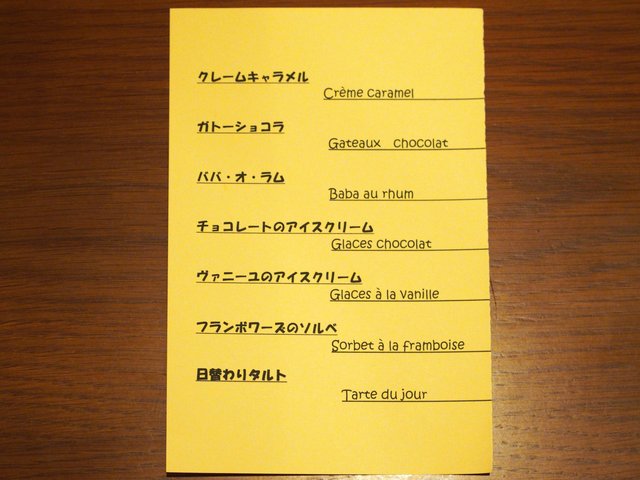 クレームキャラメル
Crème caramel
ガトーショコラ
Gateaux chocolat
ババ・オ・ラム
Baba au rhum
チョコレートのアイスクリーム
Glaces chocolat
ヴァニーユのアイスクリーム
Glaces à la vanille
フランボワーズのソルベ
Sorbet à la framboise
日替わりタルト
Tarte du jour